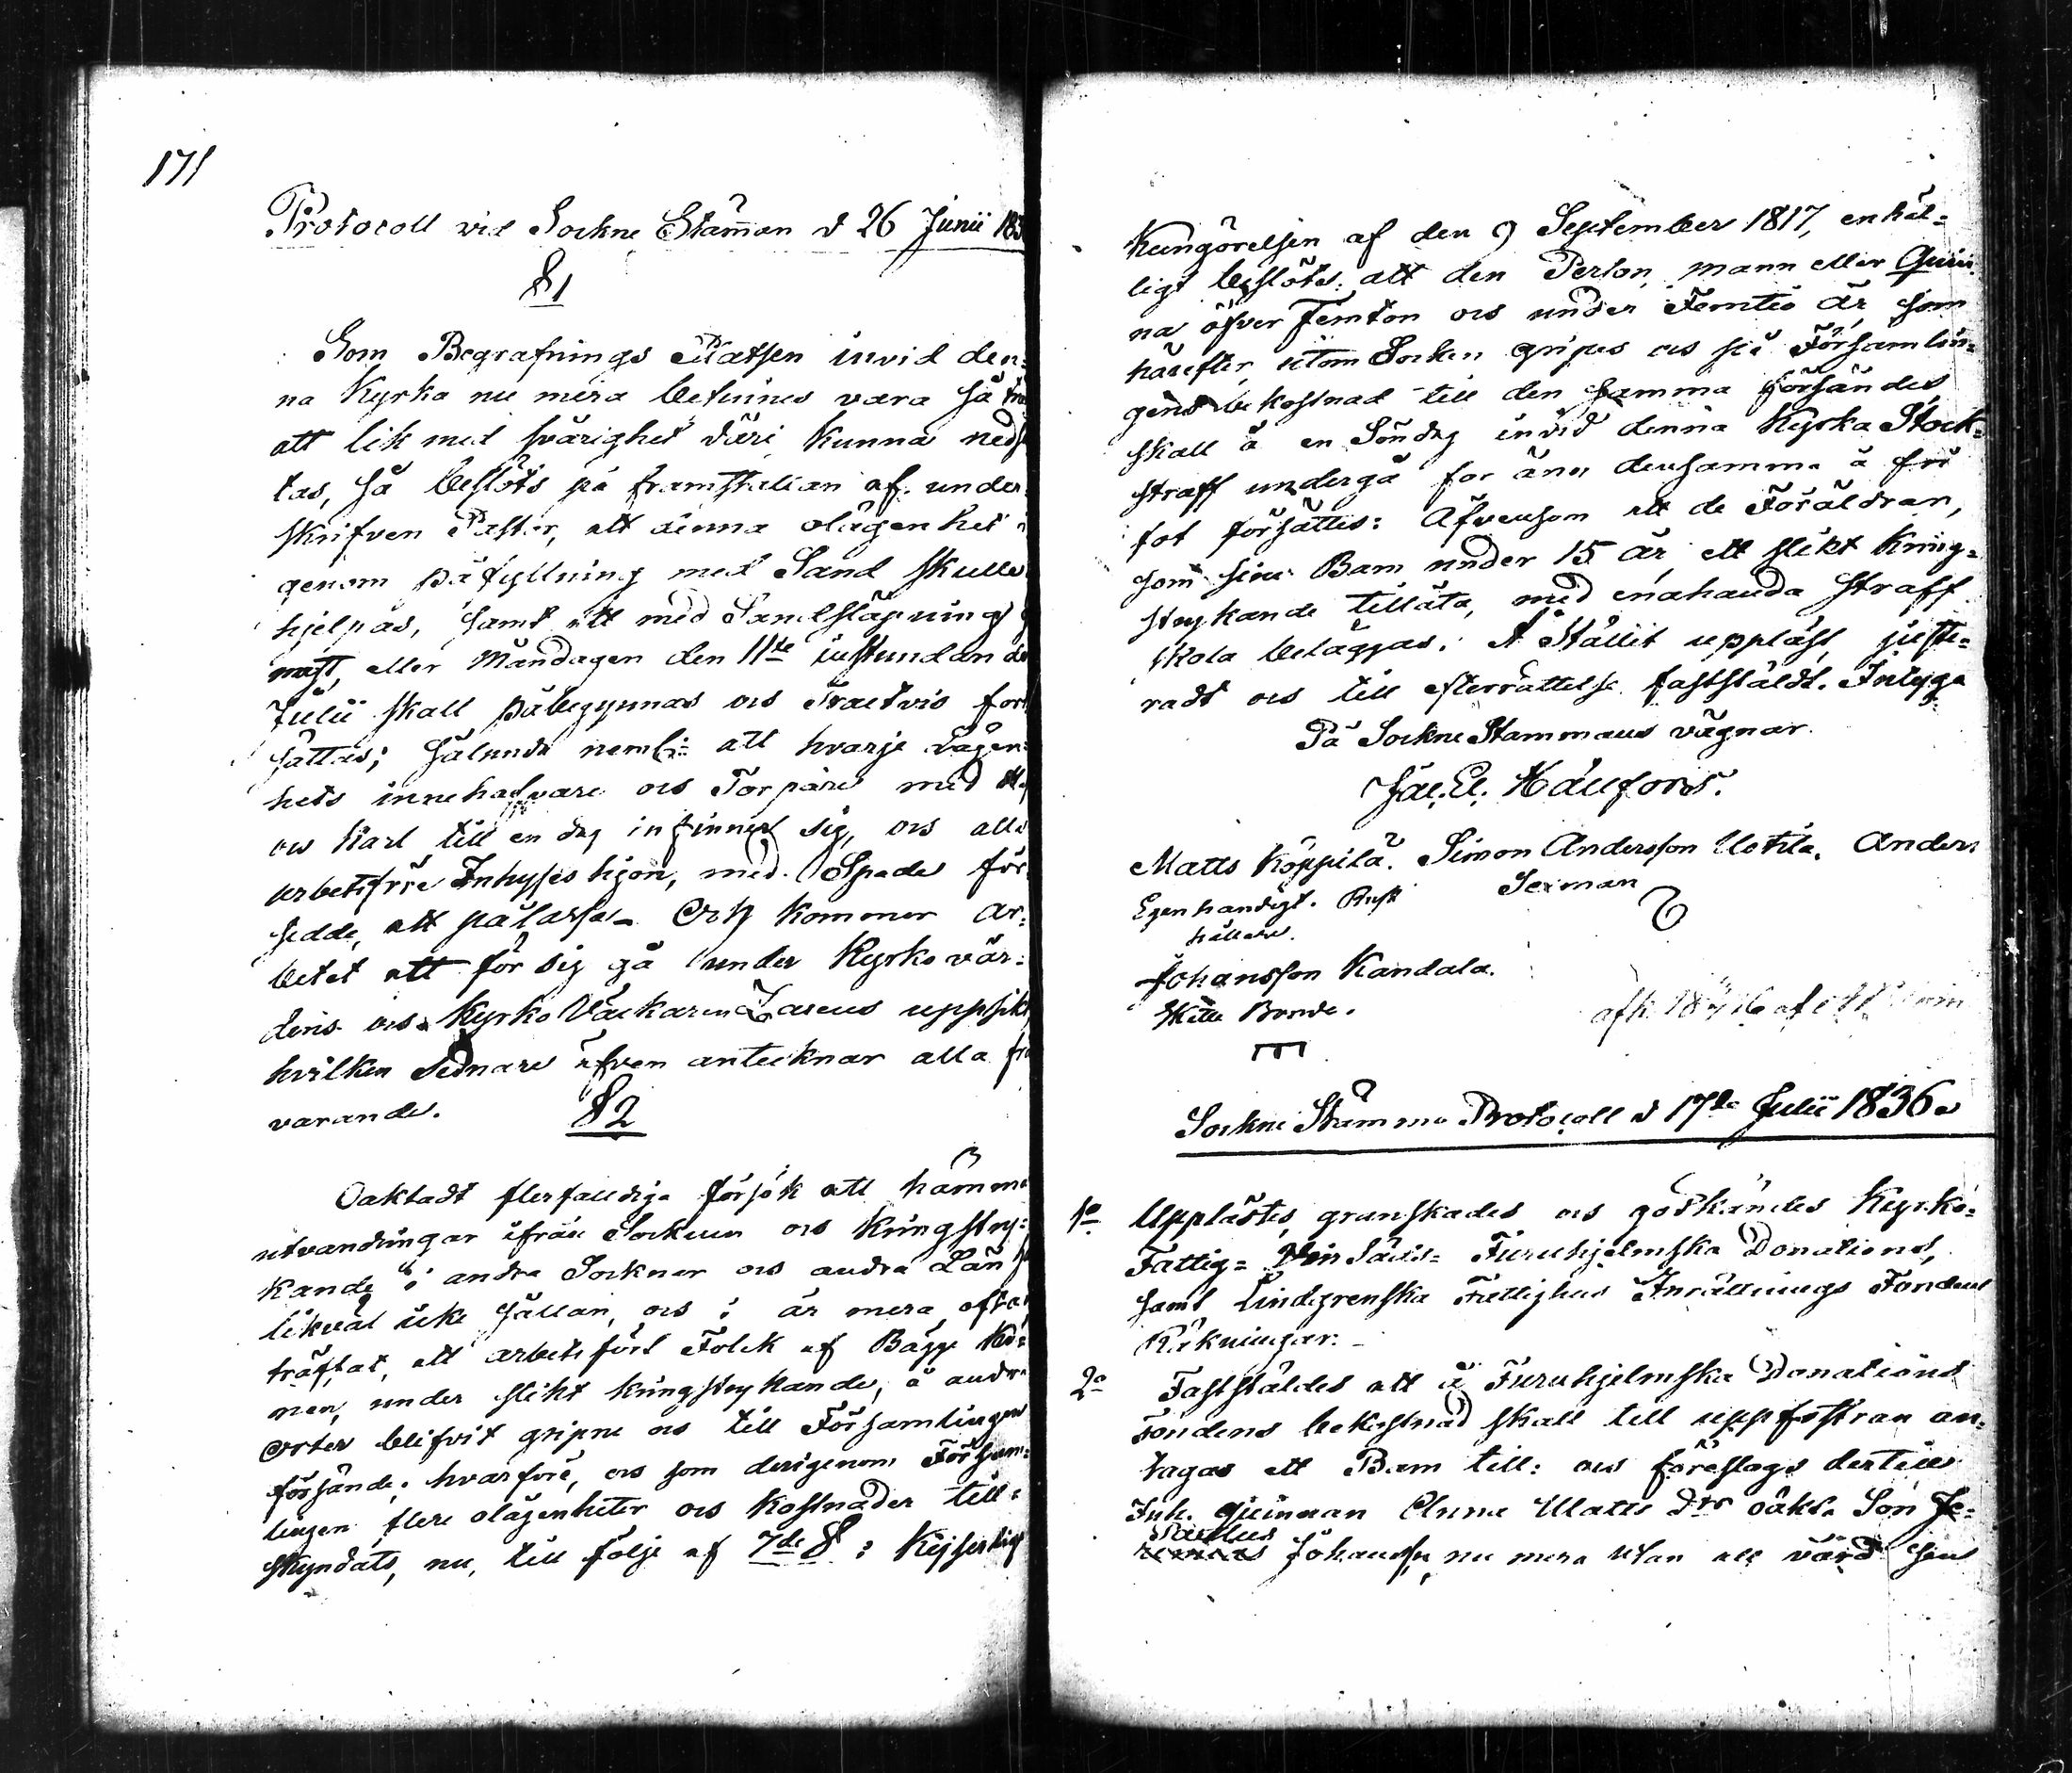 171
Protocoll vid Sockne Stämman d 26 Junii 183
§1
Som Begrafnings Platsen invid den=
na Kyrka nu mera befinnes vara så
att lik med svårighet däri kunna ned
tas, så beslöts på framställan af under=
skrifven Pastor, att denna olägenhet
genom påfyllning med Sand skulle
hjelpas, samt att med Sandslägning
näst, eller Måndagen den 11te instundande
Julii skall påbegynnas och Tractvis fort
sättas; sålunda neml: att hvarje Lägen=
hets innehafvare och Torpare med
och Karl till en dag infinner sig, och alla
arbetsföre Inhyses hjon, med Spade för
sedde, att pålassa – Och kommer Ar=
betet att för sig gå under Kyrko vär=
dens och Kyrko Väckaren Zaceus uppsikt
hvilken sednare äfven antecknar alla frå
varande.
§2
Oaktadt flerfaldiga försök att hämma
utvandringar ifrån Socknen och kringstry=
kande i andra Socknar och andra Län
likväl icke sällan, och i år mera ofta,
träffat, att arbetsfört Folck af Bägge Kö=
nen, under slikt kringstrykande, å andra
orter blifvit gripne och till Församlingen
försände; hvarföre, och som derigenom Försam=
lingen flere olägenheter och kostnader till=
skyndats, nu, till följe af 7de § i Kejserliga
Kungörelsen af den 9 September 1817, enhäl=
ligt beslöts: att den Person, mann eller Quin=
na öfver Femton och under Femtio år som
härefter utom Socken gripes och på Församlin=
gens bekostnad till den samma försändes,
skall å en Söndag invid denna Kyrka Stock=
straff undergå för än densamma å fri
fot försättes: Äfvensom att de Föräldrar,
som sina Barn under 15 år, ett slikt kring=
strykande tillåta, med enahanda straff
skola beläggas. På Stället uppläst, juste=
radt och till efterrättelse fastställdt. Intyga
På Sockne Stämmans vägnar
Matts Köppilä. Simon Andersson Uotila. Anders
Egenhändigt. Rust Sexman
hållare.
Johansson Kandala.
Bonde.
Sockne Stämmo Protocoll d 17de Julii 1836
1o Upplästes, granskades och godkändes Kyrko=
Fattig= Säds= Furuhjelmska Donations,
samt Lindgrenska Fattighus Inrättnings Fondens
Räkningar. –
2o Fastställdes att å Furuhjelmska Donations
fondens bekostnad skall till uppfostran an=
tagas ett Barn till: och föreslogs dertill
Inh. Quinnan Anna Matts Dtr oäkta Son
Johansson, nu mera utan all vård